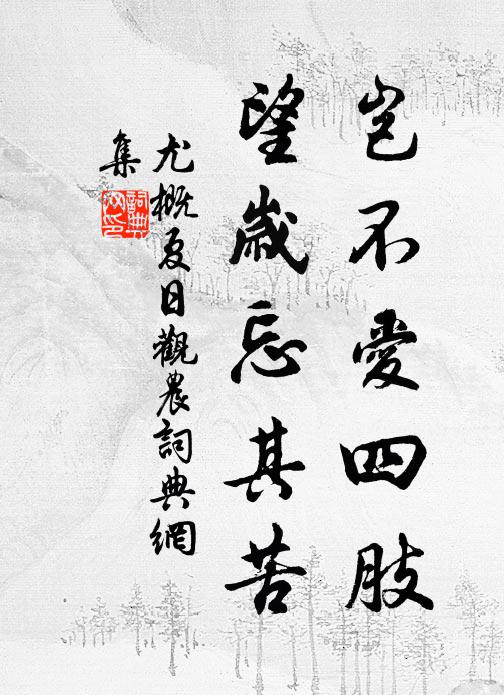 豈不愛四肢
望歲忘其苦
尤概夏日觀農詞典網
集
詞典
网印